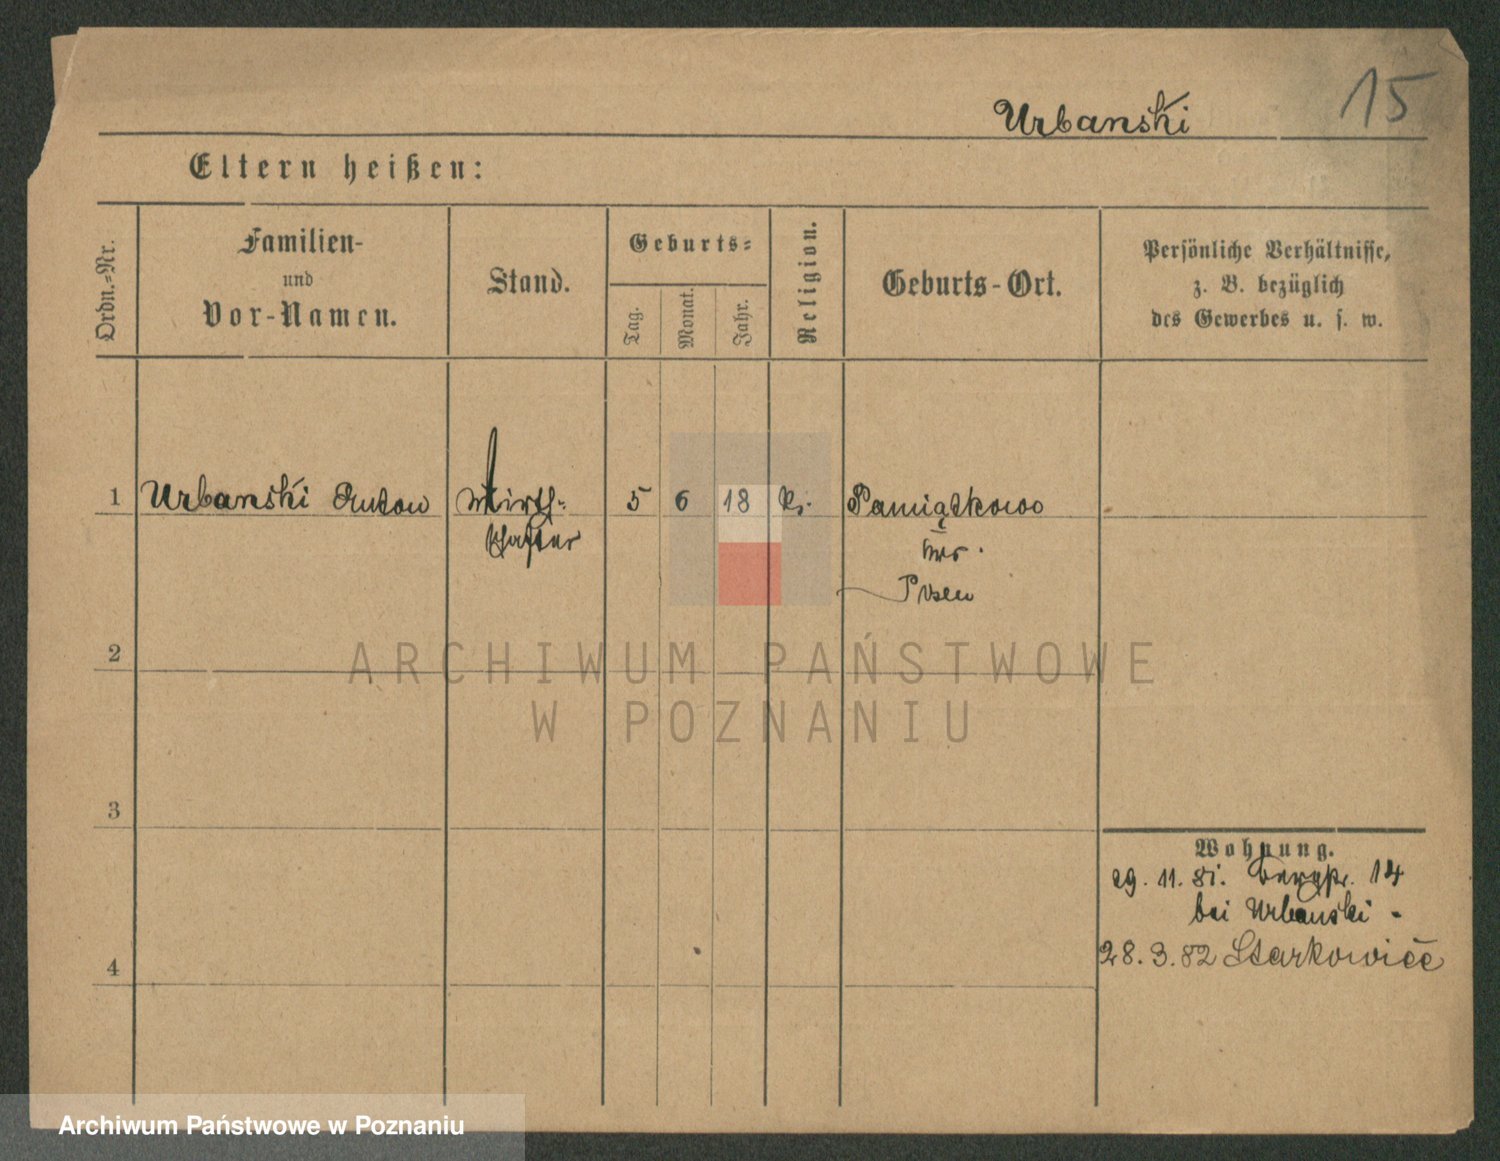 15
Urbanski
Eltern heißen:
Ordn.=Nr.
Familien-
und
Vor-Namen.
Stand.
Geburts=
Tag.
Monat.
Jahr.
Religion.
Geburts-Ort.
Persönliche Verhältnisse,
z. B. bezüglich
des Gewerbes u. s. w.
1 Urbanski Anton Wirth- 5 6 18 k. Pamiątkowo
schafter
Krs.
Posen
2
ARCHIWUM PAŃSTWOWE
W POZNANIU
3
Wohnung.
29. 11. 81. Bergstr. 14
bei Urbanski -
28. 3. 82
4
Archiwum Państwowe w Poznaniu